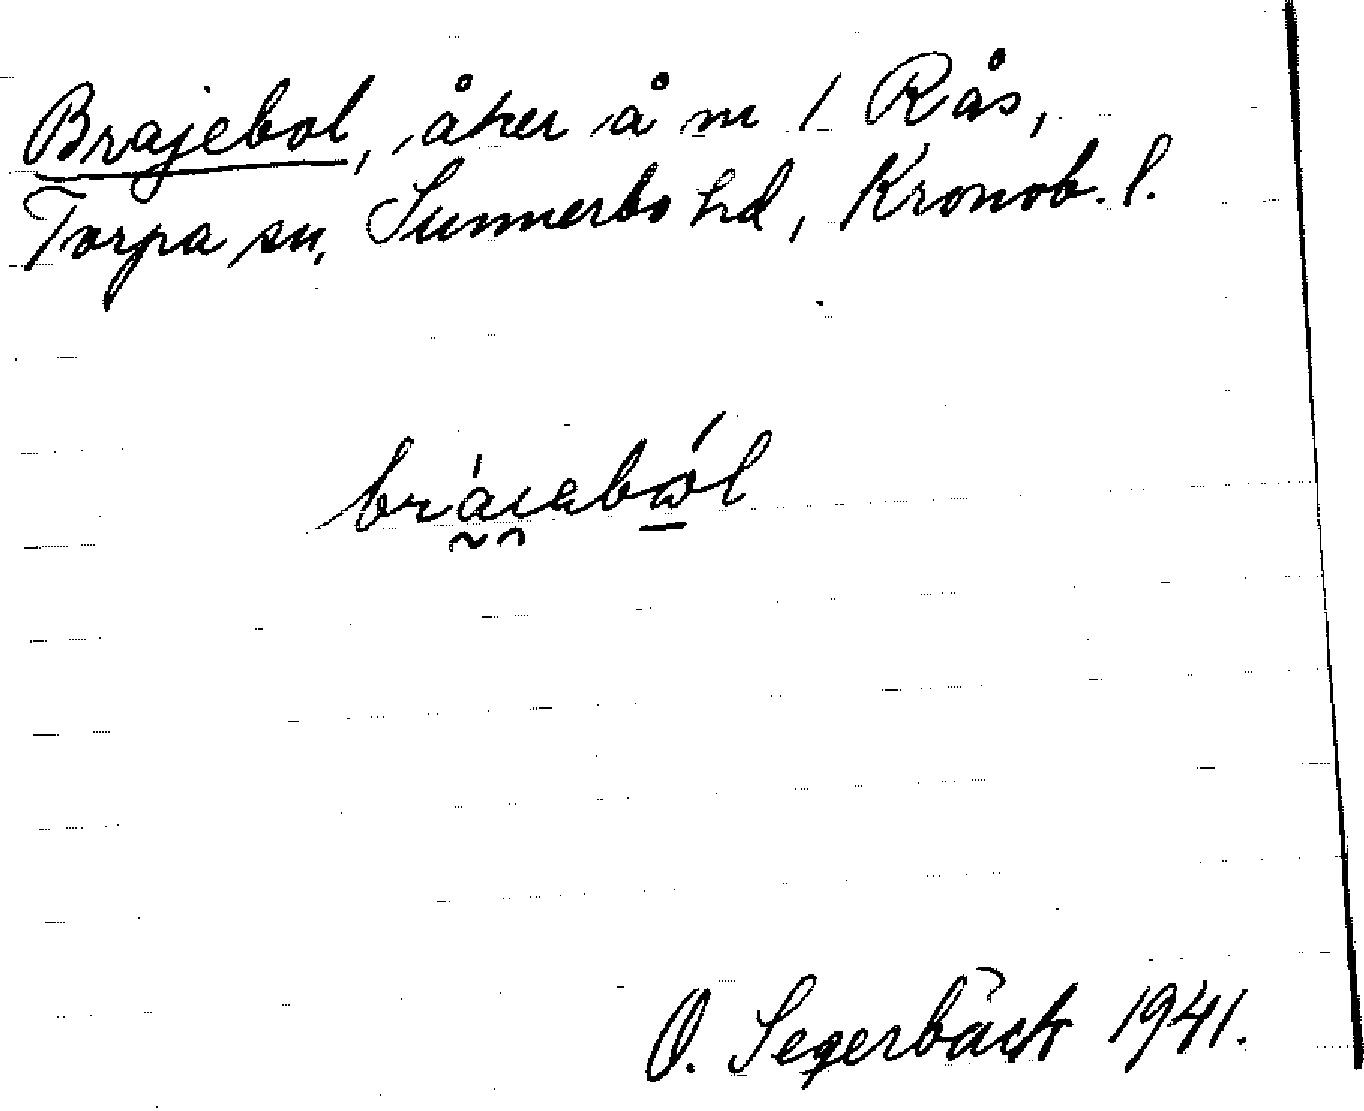 Brajebol, åker å nr 1 Rås,
Torpa sn, Sunnerbo hd, Kronob. l.
bràieból
O. Segerbäck 1941.